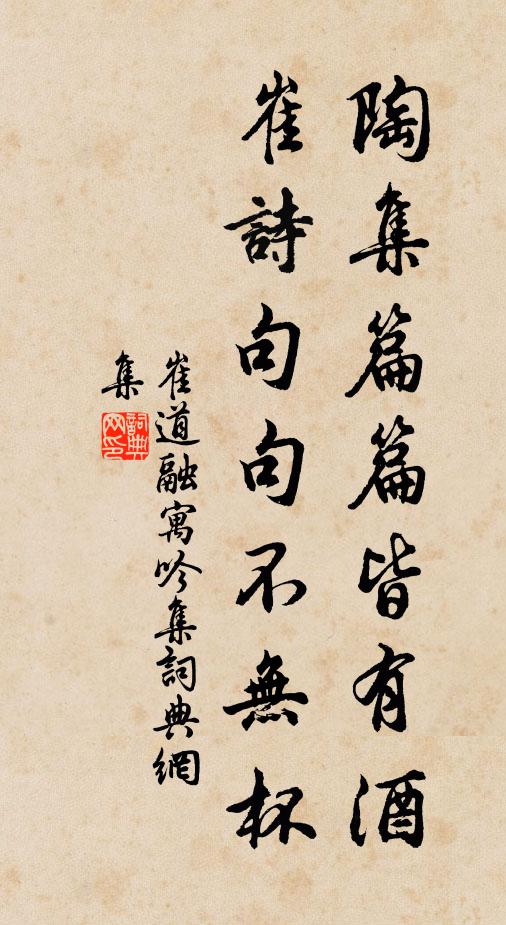 陶集篇篇皆有酒
崔詩句句不無杯
崔道融寓吟集詞典網
集
詞典网印